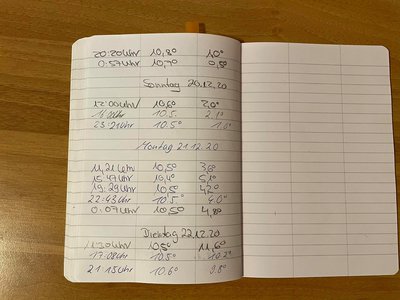 20:20 Uhr 10,8° 1,0°
0:57 Uhr 10,7° 0,5°
Sonntag 20.12.20
12:00 Uhr 10,6° 2,0°
10.5. 2.1°
23:21 Uhr 10.5° 1,0°
Montag 21.12.20
11,21 10,5° 3,6°
15:47 Uhr 10,4° 5,1°
19:29 Uhr 10,5° 4,2°
22:43 Uhr 10,5° 4.0°
0:07 Uhr 10,5° 4,8°
Dienstag 22.12.20
11:30 Uhr 10,5° 11,6°
17:08 Uhr 10.5° 10.2°
21:15 Uhr 10.6° 9.8°